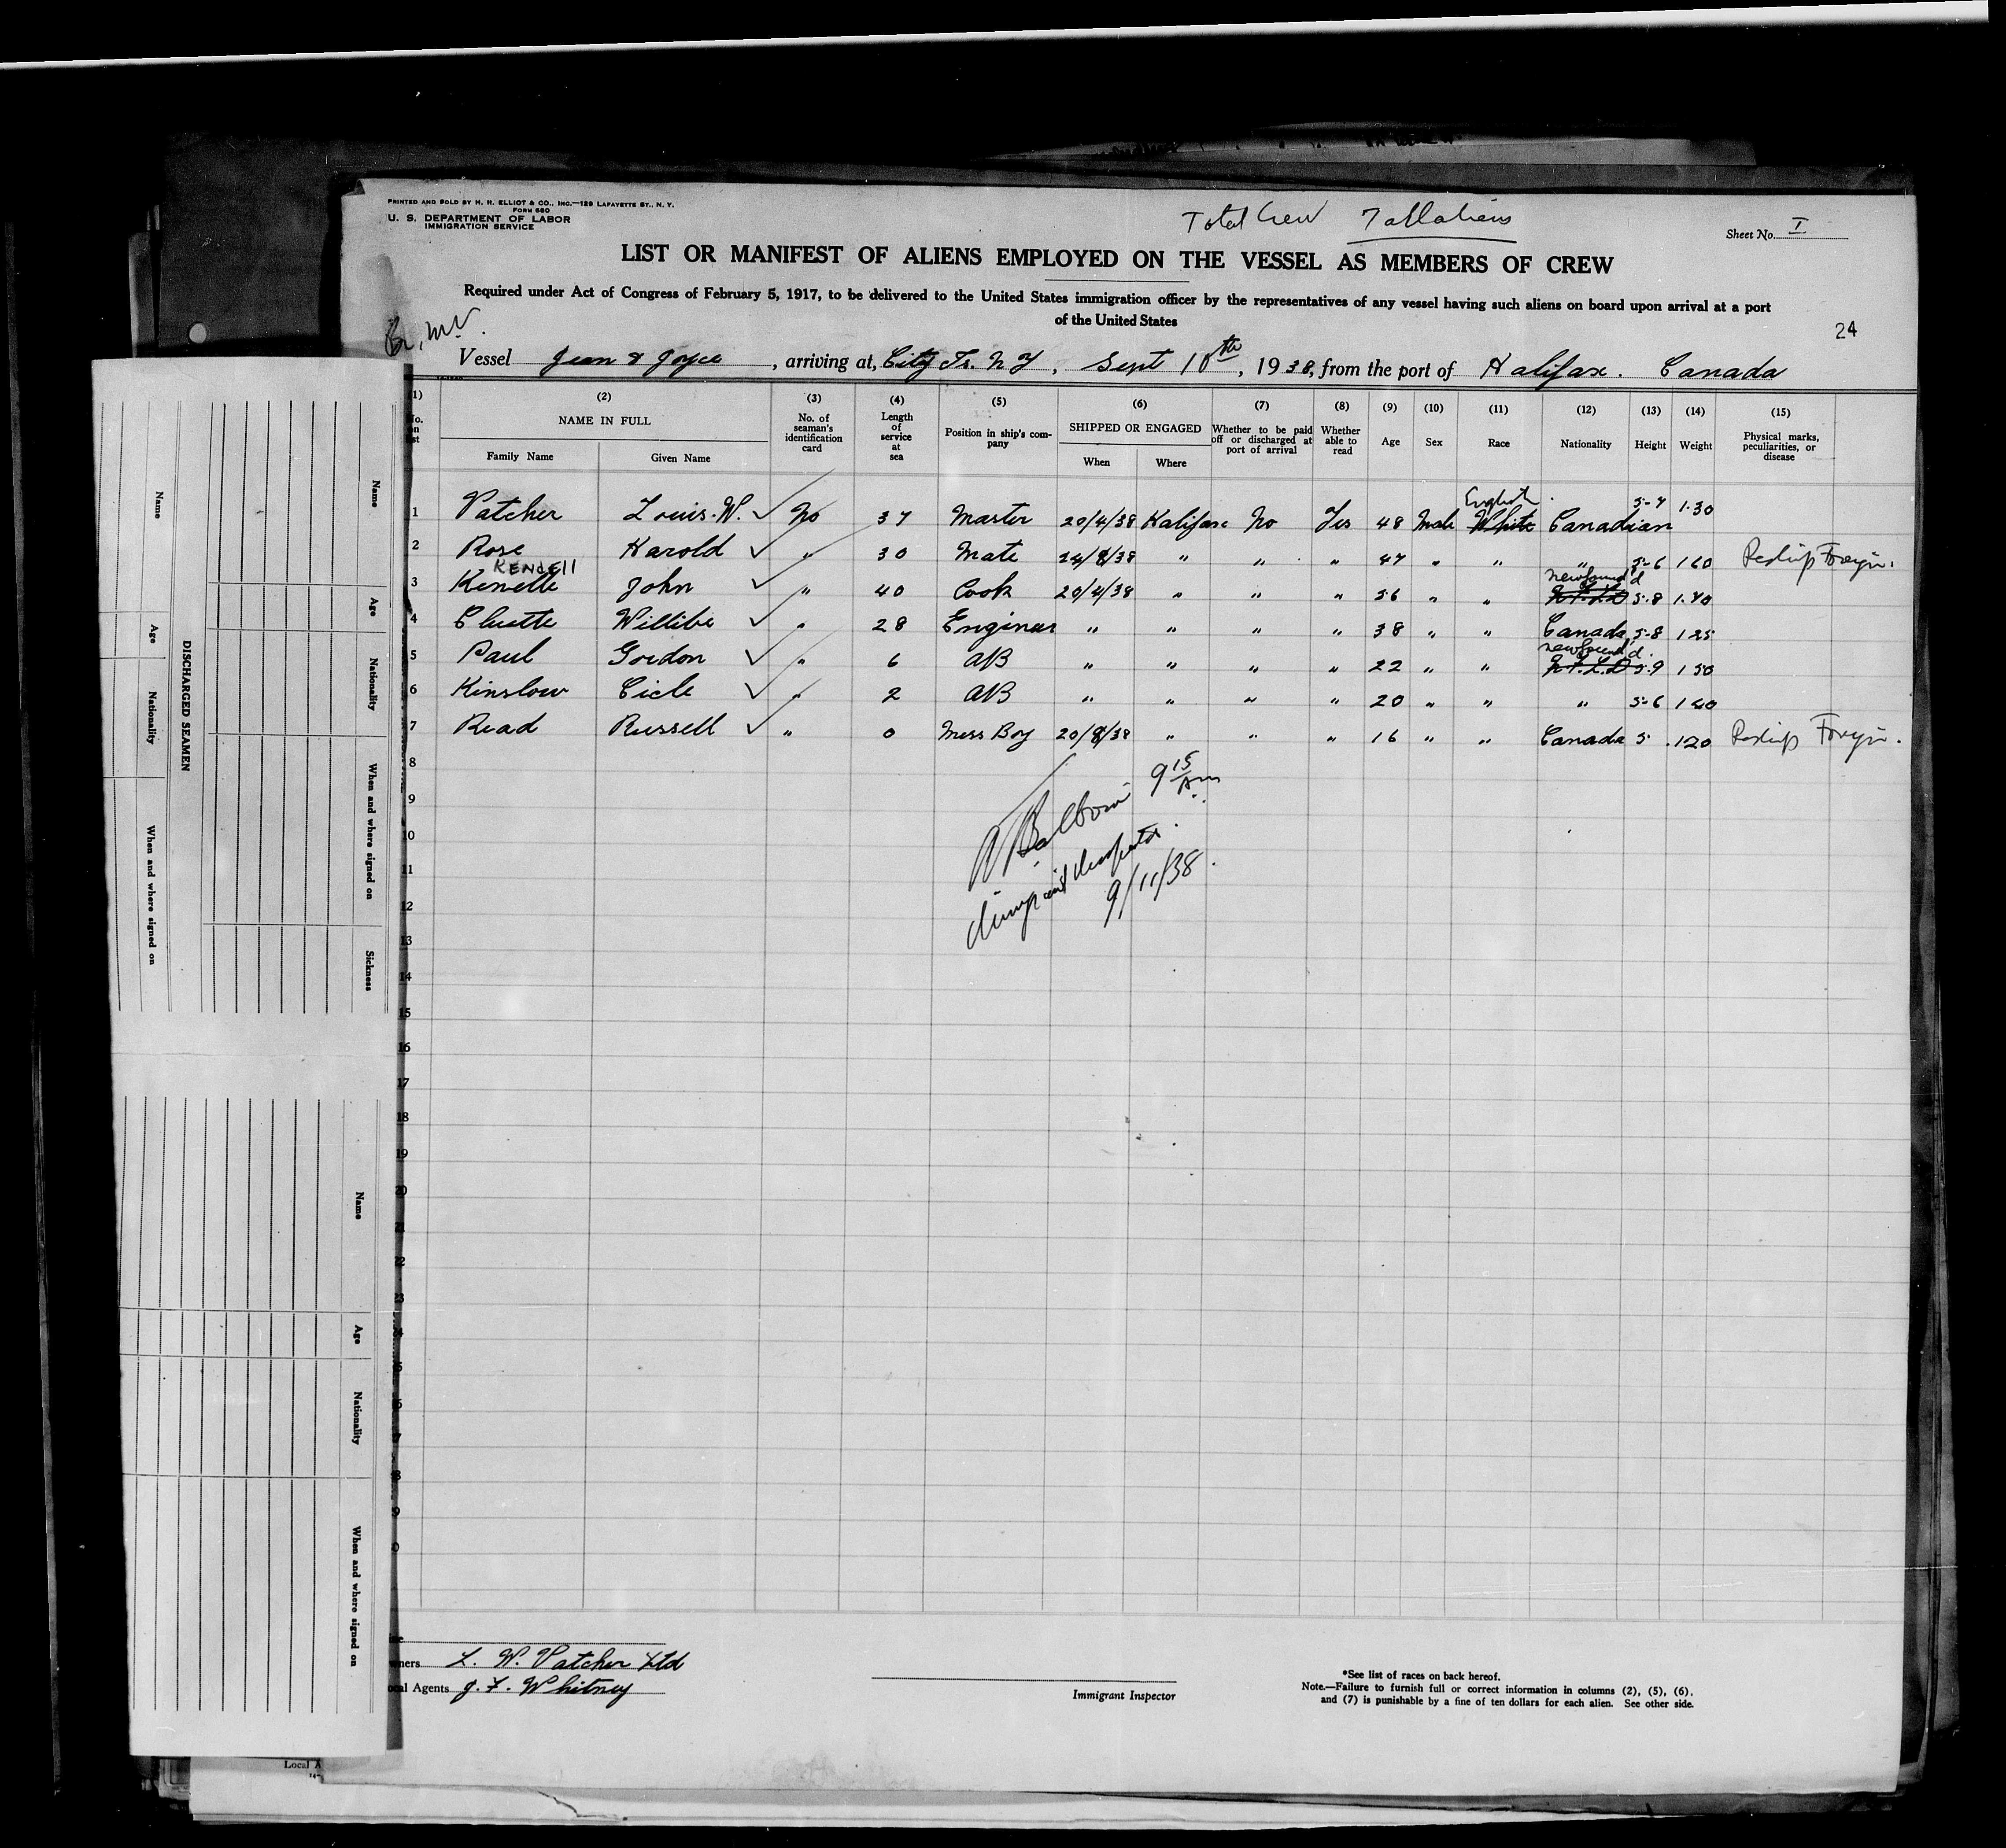 PRINTED AND SOLD BY H. R. ELLIOT & CO., INC.—129 LAFAYETTE ST., N. Y.
FORM 680
U. S. DEPARTMENT OF LABOR
IMMIGRATION SERVICE
Total Crew 7 all aliens
Sheet No. I
LIST OR MANIFEST OF ALIENS EMPLOYED ON THE VESSEL AS MEMBERS OF CREW
Required under Act of Congress of February 5, 1917, to be delivered to the United States immigration officer by the representatives of any vessel having such aliens on board upon arrival at a port
of the United States
24
Vessel Jean & Joyce, arriving at, City Is. N Y, Sept 10th, 1938, from the port of Halifax. Canada
(1) (2) (3) (4) (5) (6) (7) (8) (9) (10) (11) (12) (13) (14) (15)
NAME IN FULL
Family Name Given Name
No. of seaman's identification card
Length of service at sea
Position in ship's company
SHIPPED OR ENGAGED
When Where
Whether to be paid off or discharged at port of arrival
Whether able to read
Age Sex Race Nationality Height Weight
Physical marks, peculiarities, or disease
English
1 Patcher Louis. W. No 37 Master 20/4/38 Halifax No Yes 48 Male White Canadian 5-7 1.30
2 Rose Harold " 30 Mate 24/8/38 " " " 47 " " " 5-6 160 Reship Foreign.
KENDEll newfound'd
3 Kenelle John " 40 Cook 20/4/38 " " " 56 " " N.F.L.D 5.8 1.40
4 Cluette Willibe " 28 Engineer " " " " 38 " " Canada 5-8 125
newfound'd.
5 Paul Gordon " 6 AB " " " " 22 " " N.F.L.D 5-9 150
6 Kinslow Cicle " 2 AB " " " " 20 " " " 5-6 140
7 Read Russell " 0 Mess Boy 20/8/38 " " " 16 " " Canada 5 .120 Reship Foreign.
8
9
10
11
12
13
14
15
16
17
18
19
20
21
22
23
9 15 Am
Immigrant Inspector
9/11/38
Owners L. W. Patcher Ltd
Local Agents J. F. Whitney
Immigrant Inspector
*See list of races on back hereof.
Note.—Failure to furnish full or correct information in columns (2), (5), (6),
and (7) is punishable by a fine of ten dollars for each alien. See other side.
DISCHARGED SEAMEN
Name Age Nationality When and where signed on
Name Age Nationality When and where signed on Sickness
Name Age Nationality When and where signed on
Local A